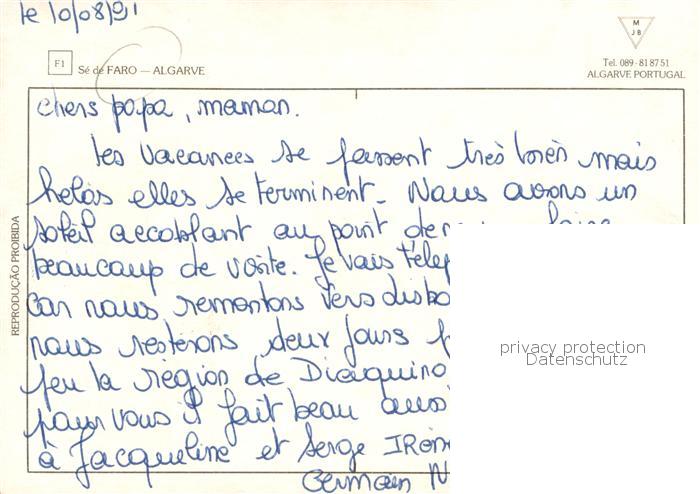 le 10/08/91
M
JB
F1
Sé de FARO — ALGARVE
Tel. 089 - 81 87 51
ALGARVE PORTUGAL
chers papa, maman.
les vacances se passent très bien mais
helas elles se terminent. Nous avons un
soleil accablant au point de faire
beaucoup de visite. Je vais télép
car nous remontons vers
nous resterons deux jours p
peu la region de
pour vous il fait beau aussi
à Jacqueline et Serge
Germain N
REPRODUÇÃO PROIBIDA
privacy protection
Datenschutz